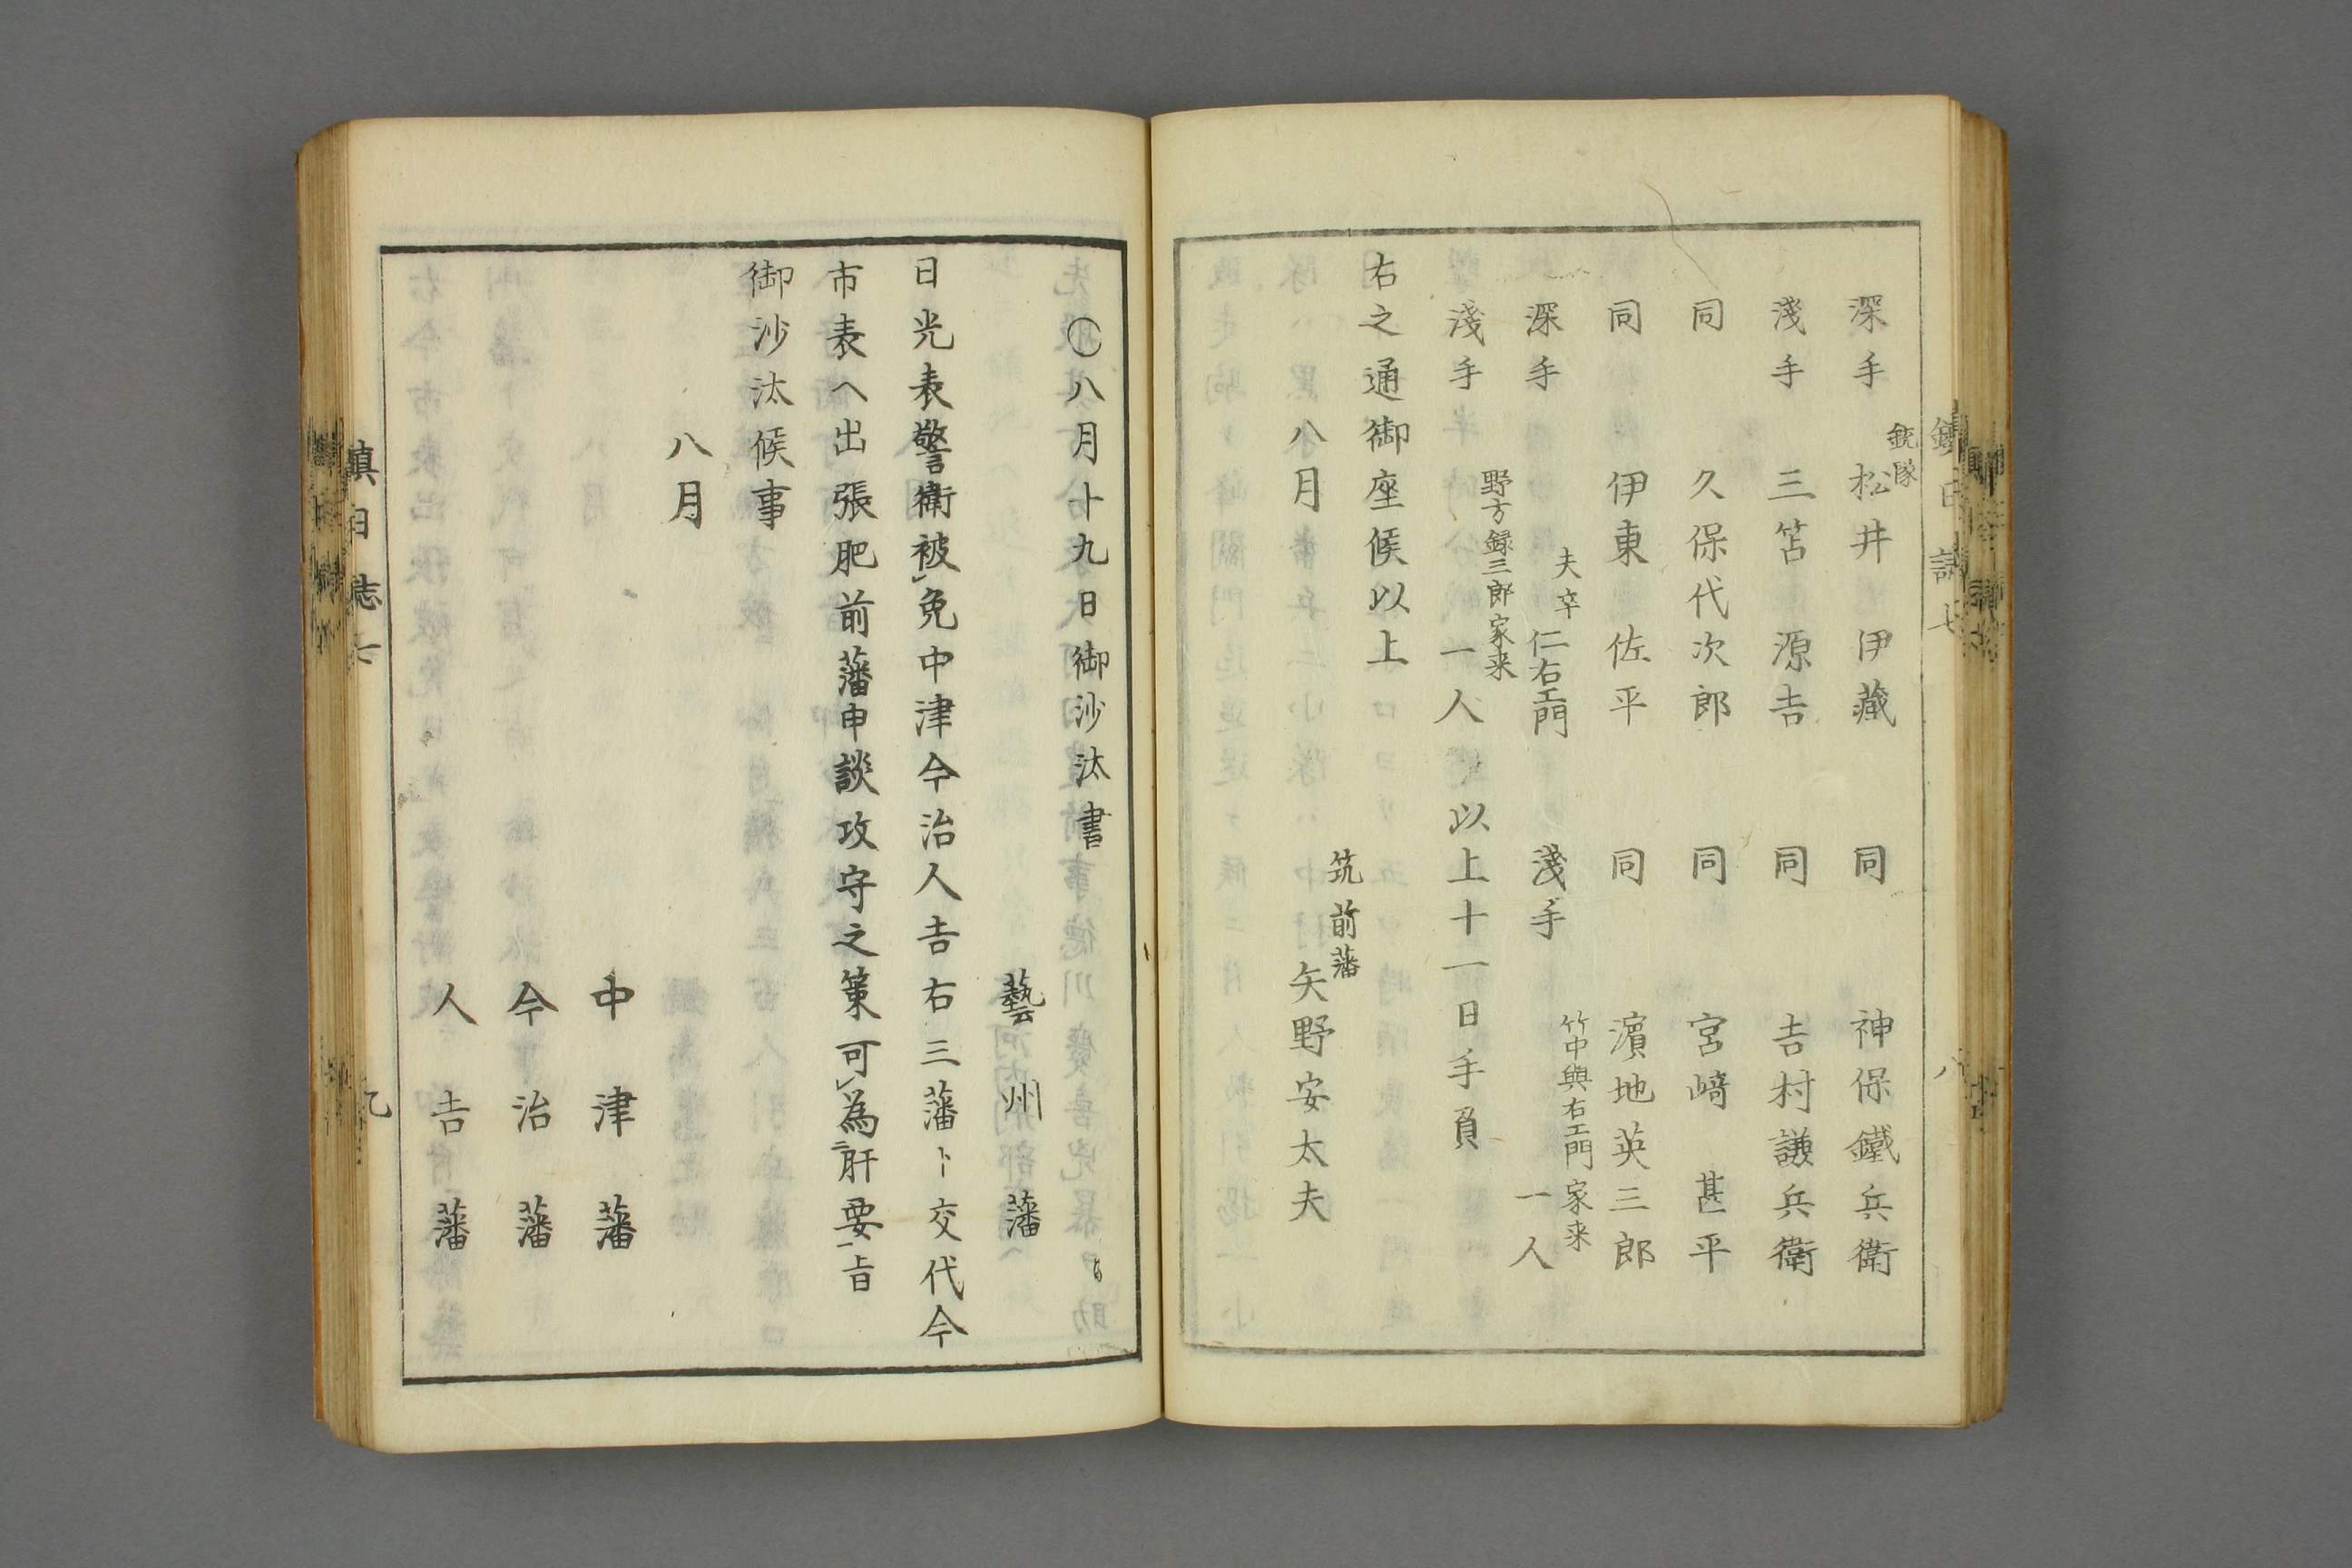 銃隊
深手 松井伊藏 同 神保鐵兵衛
淺手 三笘源吉 同 吉村謙兵衛
同 久保代次郎 同 宮﨑甚平
同 伊東佐平 同 濵地英三郎
夫卒 竹中與右エ門家来
深手 仁右エ門 淺手 一人
野方録三郎家来
淺手 一人 以上十一日手負
右之通御座候以上
筑前藩
八月 矢野安太夫
〇八月十九日御沙汰書
藝州藩
日光表警衛被免中津今治人吉右三藩ト交代今
市表ヘ出張肥前藩申談攻守之策可為肝要旨
御沙汰候事
八月
中津藩
今治藩
人吉藩
鎮日志七